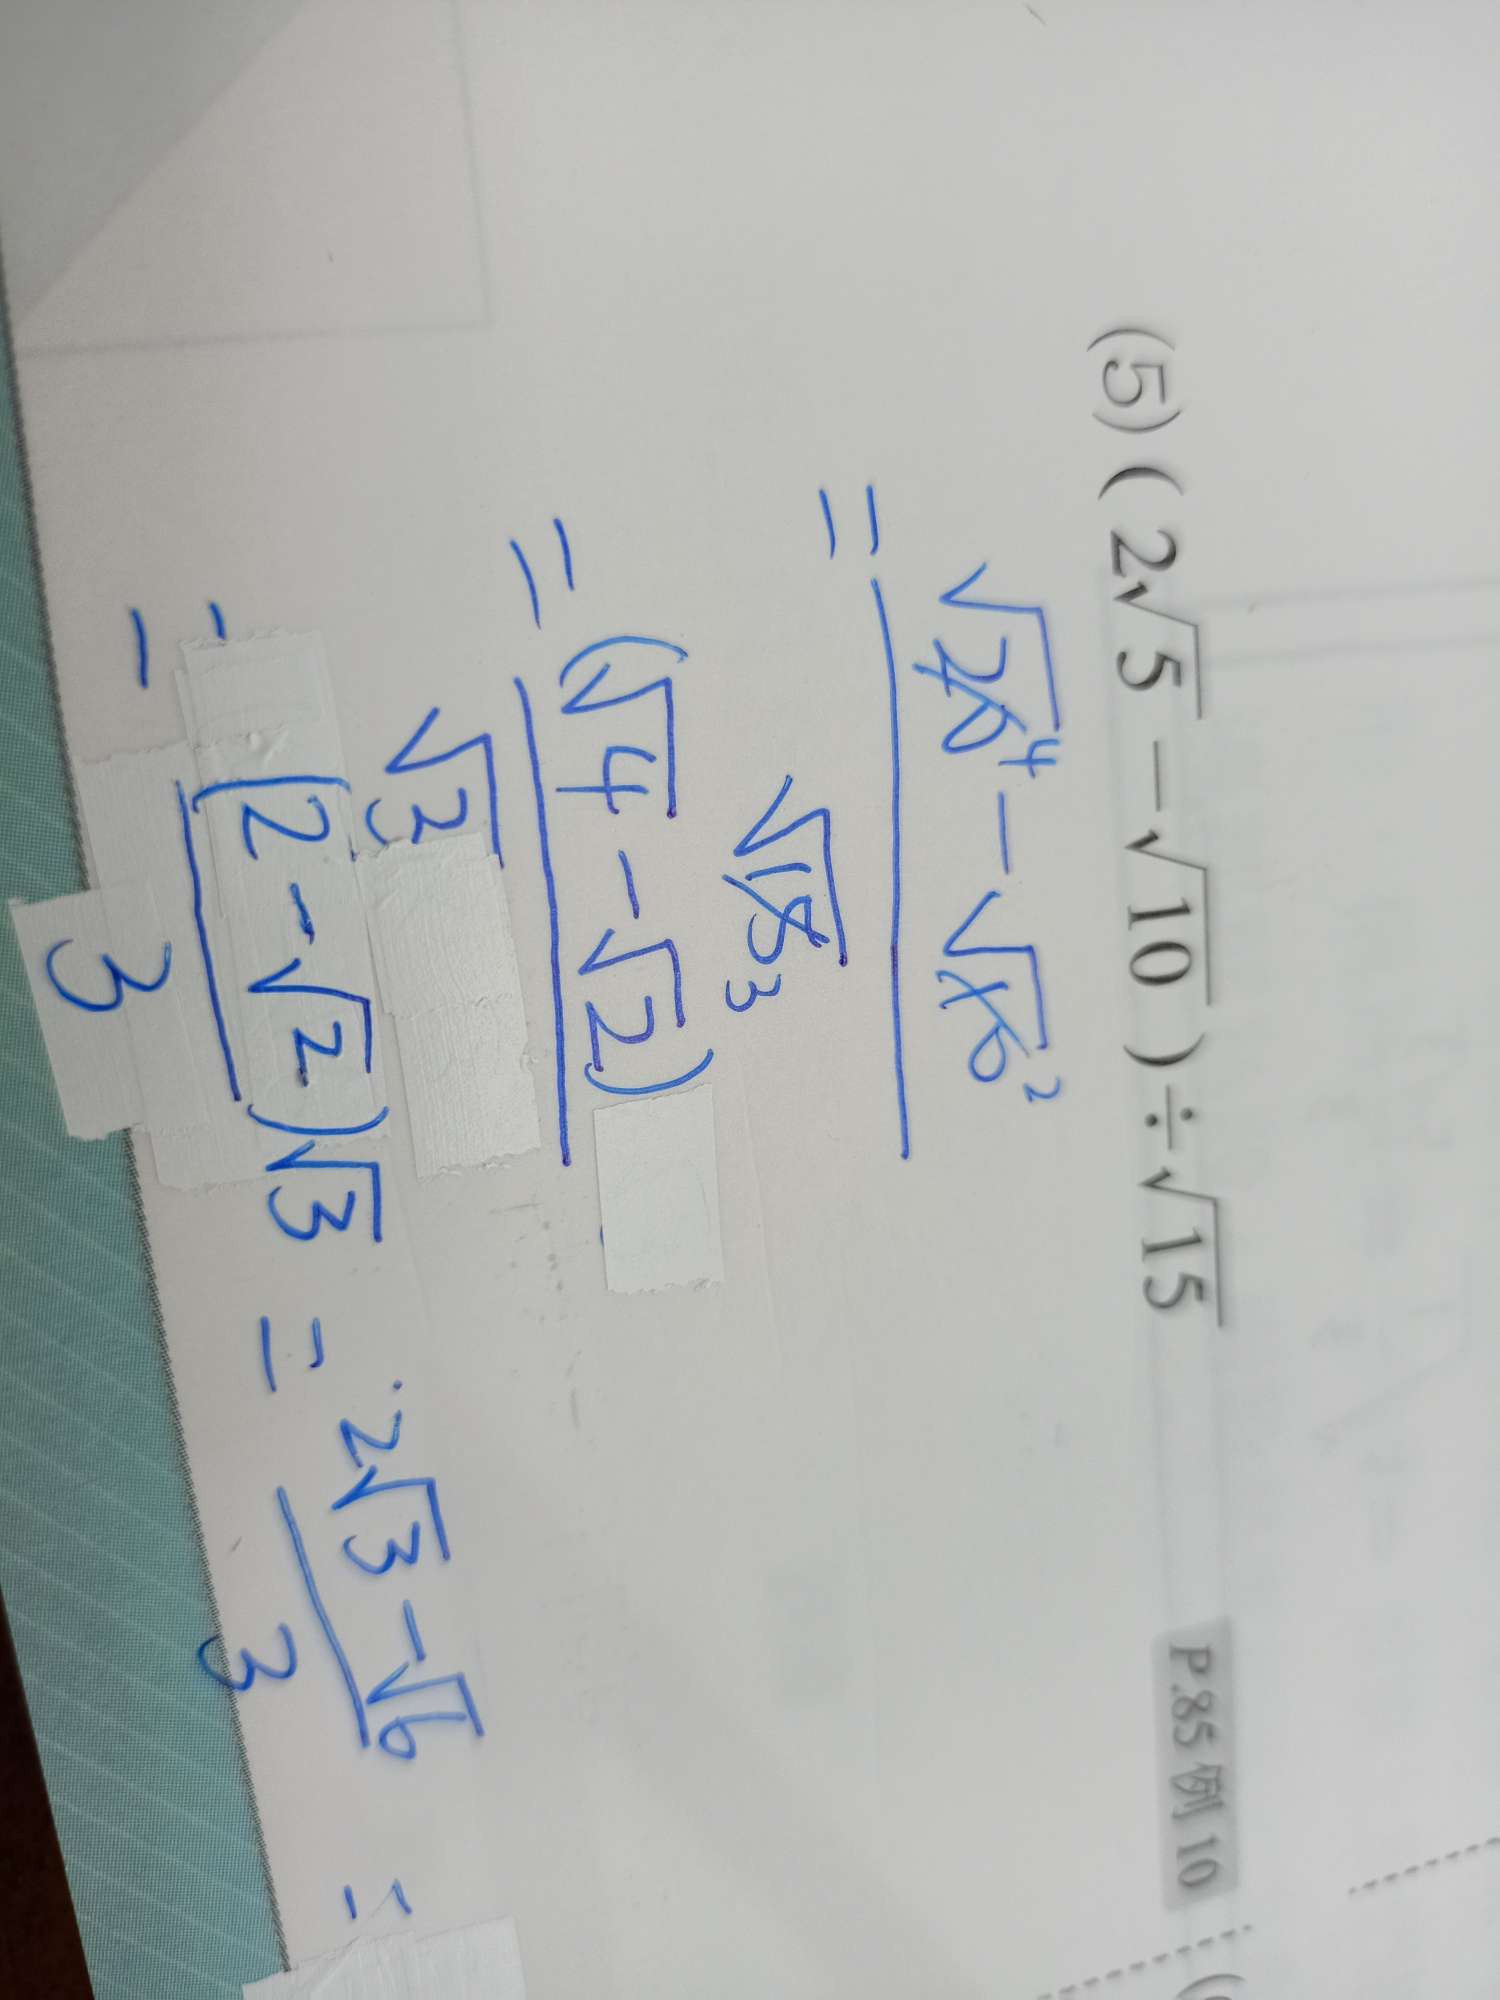 (5) ( 2√5 − √10 ) ÷ √15 P.85 例 10
= (√20⁴ − √10²) / √15₃
= (√4 − √2) / √3
= (2 − √2)√3 / 3 = (2√3 − √6) / 3 =